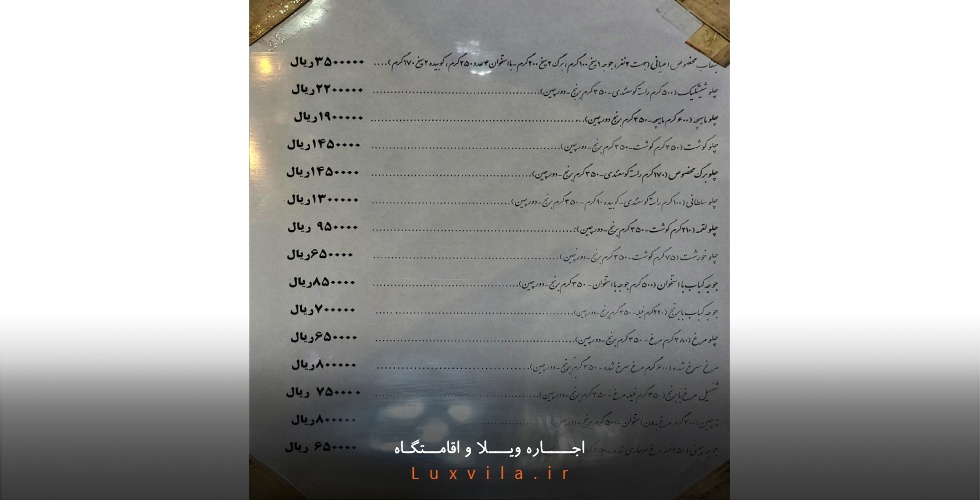 کباب مخصوص اعیانی (جهت ۲نفر، جوجه ۱سیخ ۱۰۰گرم، برگ ۲سیخ ۲۰۰گرم-بااستخوان ۴عدد ۲۵۰گرم، کوبیده ۲سیخ ۱۷۰گرم)....۳۵۰۰۰۰۰ریال
چلو شیشلیک (۵۰۰گرم راسته گوسفندی-۳۵۰گرم برنج-دورچین)....۲۲۰۰۰۰۰ریال
چلو ماهیچه (۶۰۰گرم ماهیچه-۳۵۰گرم برنج دورچین)....۱۹۰۰۰۰۰ریال
چلو گوشت (۲۵۰گرم گوشت-۳۵۰گرم برنج-دورچین)....۱۴۵۰۰۰۰ریال
چلوبرگ مخصوص (۱۷۰گرم راسته گوسفندی-۳۵۰گرم برنج-دورچین)....۱۴۵۰۰۰۰ریال
چلو سلطانی (۱۰۰گرم راسته گوسفندی-کوبیده ۹۰گرم-۳۵۰گرم برنج-دورچین)....۱۳۰۰۰۰۰ریال
چلو لقمه (۲۱۰گرم گوشت-۳۵۰گرم برنج-دورچین)....۹۵۰۰۰۰ ریال
چلو خورشت (۷۵گرم گوشت-۳۵۰گرم برنج-دورچین)....۶۵۰۰۰۰ریال
جوجه کباب با استخوان (۵۰۰گرم جوجه با استخوان-۳۵۰گرم برنج-دورچین)....۸۵۰۰۰۰ریال
جوجه کباب با برنج (۲۹۰گرم فیله-۳۵۰گرم برنج-دورچین)....۷۰۰۰۰۰ریال
چلو مرغ (۳۸۰گرم مرغ-۳۵۰گرم برنج-دورچین)....۶۵۰۰۰۰ریال
مرغ سرخ شده (۶۰۰گرم مرغ سرخ شده-۳۵۰گرم برنج-دورچین)....۸۰۰۰۰۰ریال
شنسل مرغ با برنج (۳۵۰گرم فیله مرغ-۳۵۰گرم برنج-دورچین)....۷۵۰۰۰۰ ریال
ته چین (۲۰۰گرم مرغ بدون استخوان-۵۰۰گرم برنج-دورچین)....۸۰۰۰۰۰ریال
۶۵۰۰۰۰ ریال
اجاره ویلا و اقامتگاه
Luxvila.ir